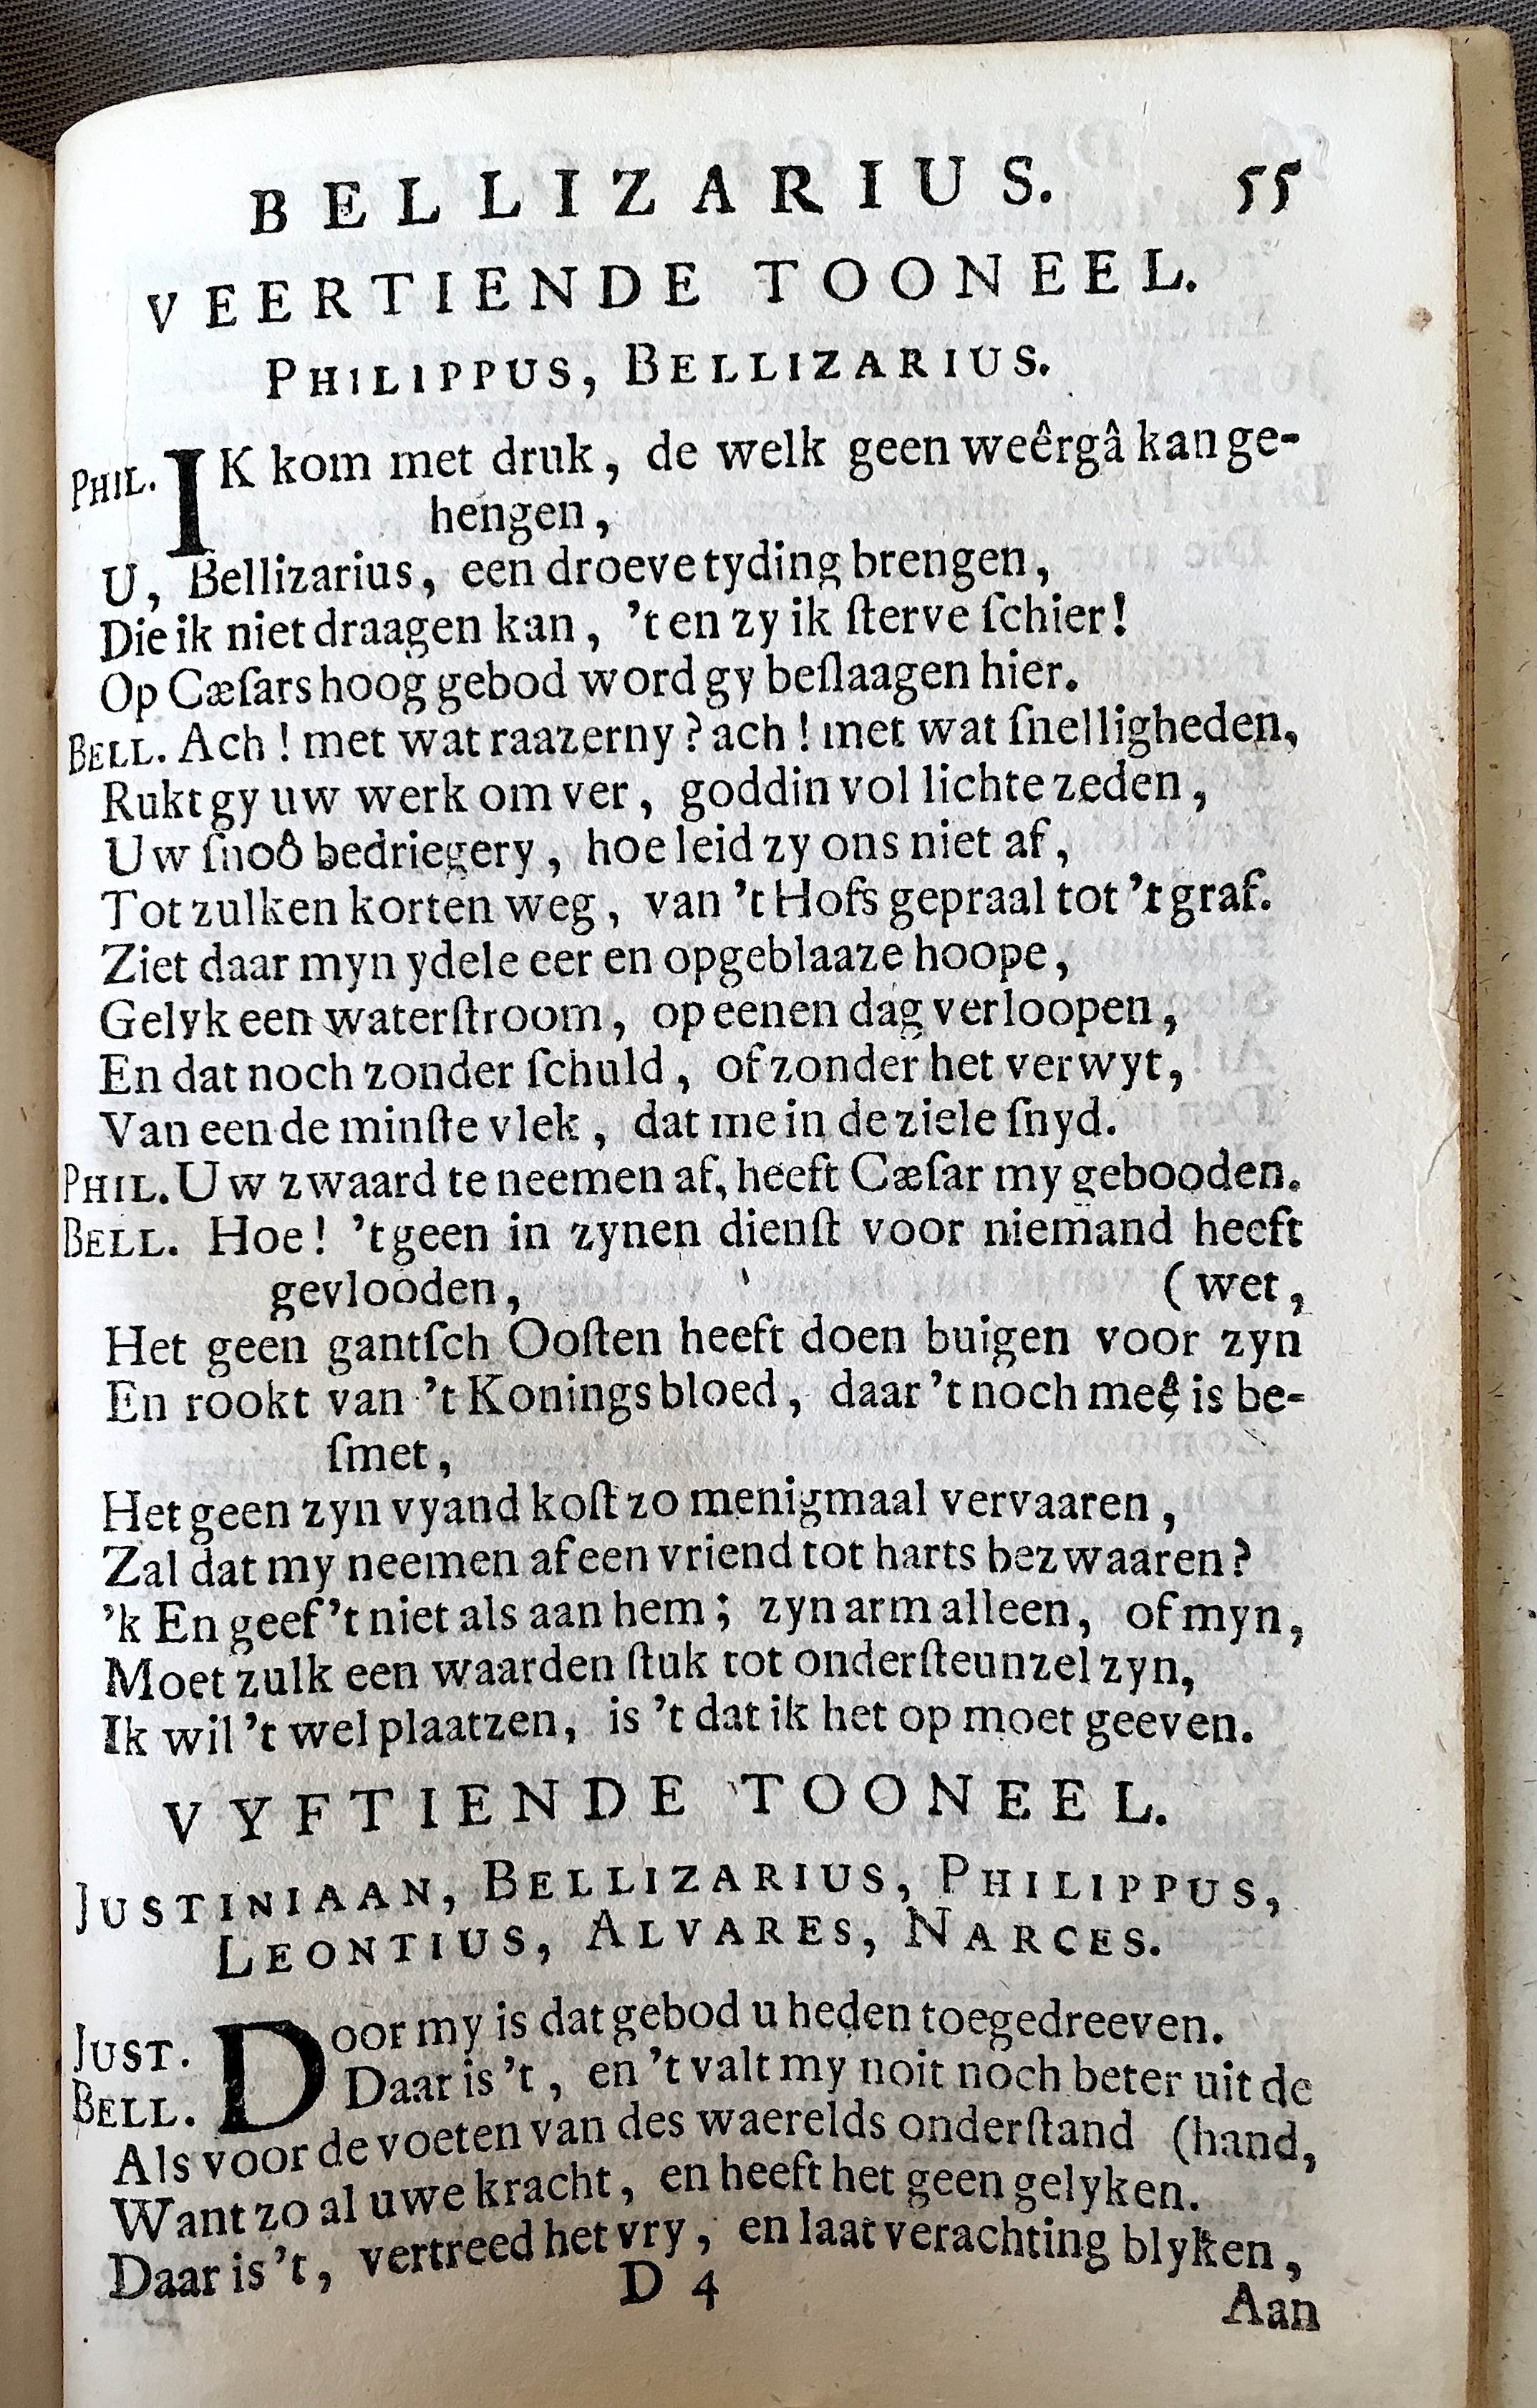 BELLIZARIUS. 55
VEERTIENDE TOONEEL.
PHILIPPUS, BELLIZARIUS.
PHIL. IK kom met druk, de welk geen weêrgâ kan ge-
hengen,
U, Bellizarius, een droeve tyding brengen,
Die ik niet draagen kan, 't en zy ik ſterve ſchier!
Op Cæſars hoog gebod word gy beſlaagen hier.
BELL. Ach! met wat raazerny? ach! met wat ſnelligheden,
Rukt gy uw werk om ver, goddin vol lichte zeden,
Uw ſnoô bedriegery, hoe leid zy ons niet af,
Tot zulken korten weg, van 't Hofs gepraal tot 't graf.
Ziet daar myn ydele eer en opgeblaaze hoope,
Gelyk een waterſtroom, op eenen dag verloopen,
En dat noch zonder ſchuld, of zonder het verwyt,
Van een de minſte vlek, dat me in de ziele ſnyd.
PHIL. Uw zwaard te neemen af, heeft Cæſar my gebooden.
BELL. Hoe! 't geen in zynen dienſt voor niemand heeft
gevlooden, (wet,
Het geen gantſch Ooſten heeft doen buigen voor zyn
En rookt van 't Konings bloed, daar 't noch meê is be-
ſmet,
Het geen zyn vyand koſt zo menigmaal vervaaren,
Zal dat my neemen af een vriend tot harts bezwaaren?
'k En geef 't niet als aan hem; zyn arm alleen, of myn,
Moet zulk een waarden ſtuk tot onderſteunzel zyn,
Ik wil 't wel plaatzen, is 't dat ik het op moet geeven.
VYFTIENDE TOONEEL.
JUSTINIAAN, BELLIZARIUS, PHILIPPUS,
LEONTIUS, ALVARES, NARCES.
JUST. Door my is dat gebod u heden toegedreeven.
BELL. Daar is 't, en 't valt my noit noch beter uit de
Als voor de voeten van des waerelds onderſtand (hand,
Want zo al uwe kracht, en heeft het geen gelyken.
Daar is 't, vertreed het vry, en laat verachting blyken,
D 4
Aan